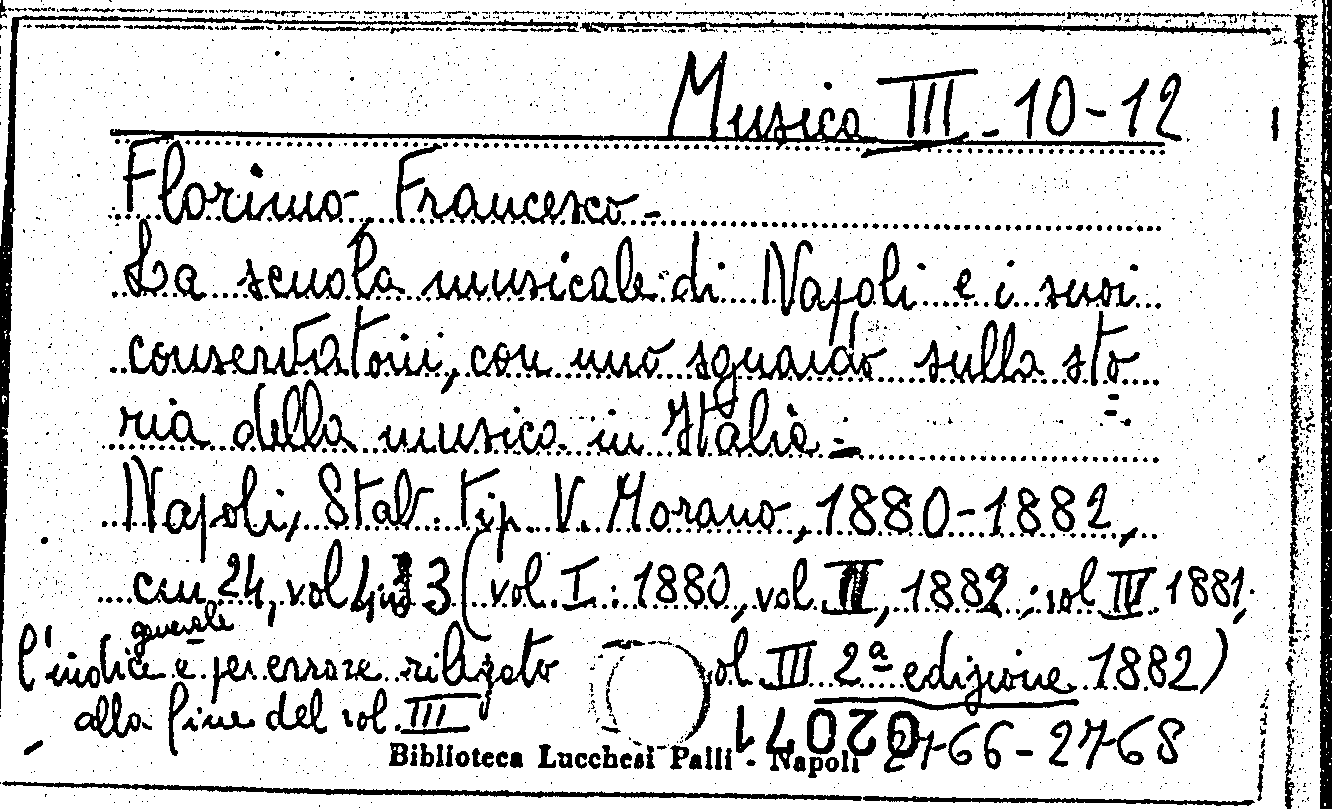 Musica III - 10-12
Florimo, Francesco -
La scuola musicale di Napoli e i suoi
conservatorii, con uno sguardo sulla sto
=
ria della musica in Italia =
Napoli, Stab. tip. V. Morano, 1880-1882,
cm 24, vol. 4 in 3 (vol. I: 1880, vol. II, 1882; vol IV 1881,
generale
l'indice è per errore rilegato
vol III 2ª edizione 1882)
alla fine del vol. III
02071
2766-2768
Biblioteca Lucchesi Palli - Napoli